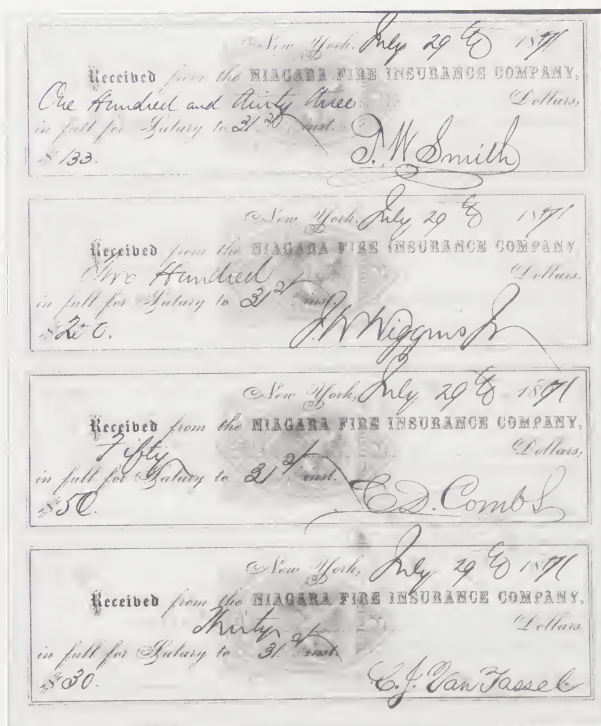 New York, July 29th 1871
Received from the NIAGARA FIRE INSURANCE COMPANY,
One Hundred and thirty three Dollars,
in full for Salary to 31st inst.
$133.
T. W. Smith
New York, July 29th 1871
Received from the NIAGARA FIRE INSURANCE COMPANY,
Two Hundred Dollars.
in full for Salary to 31st inst.
$200.
J. W. Wiggins Jr
New York, July 29th 1871
Received from the NIAGARA FIRE INSURANCE COMPANY,
Fifty Dollars,
in full for Salary to 31st inst.
$50.
C. D. Combs
New York, July 29th 1871
Received from the NIAGARA FIRE INSURANCE COMPANY,
Thirty Dollars
in full for Salary to 31st inst.
$30.
C. J. Van Tassel